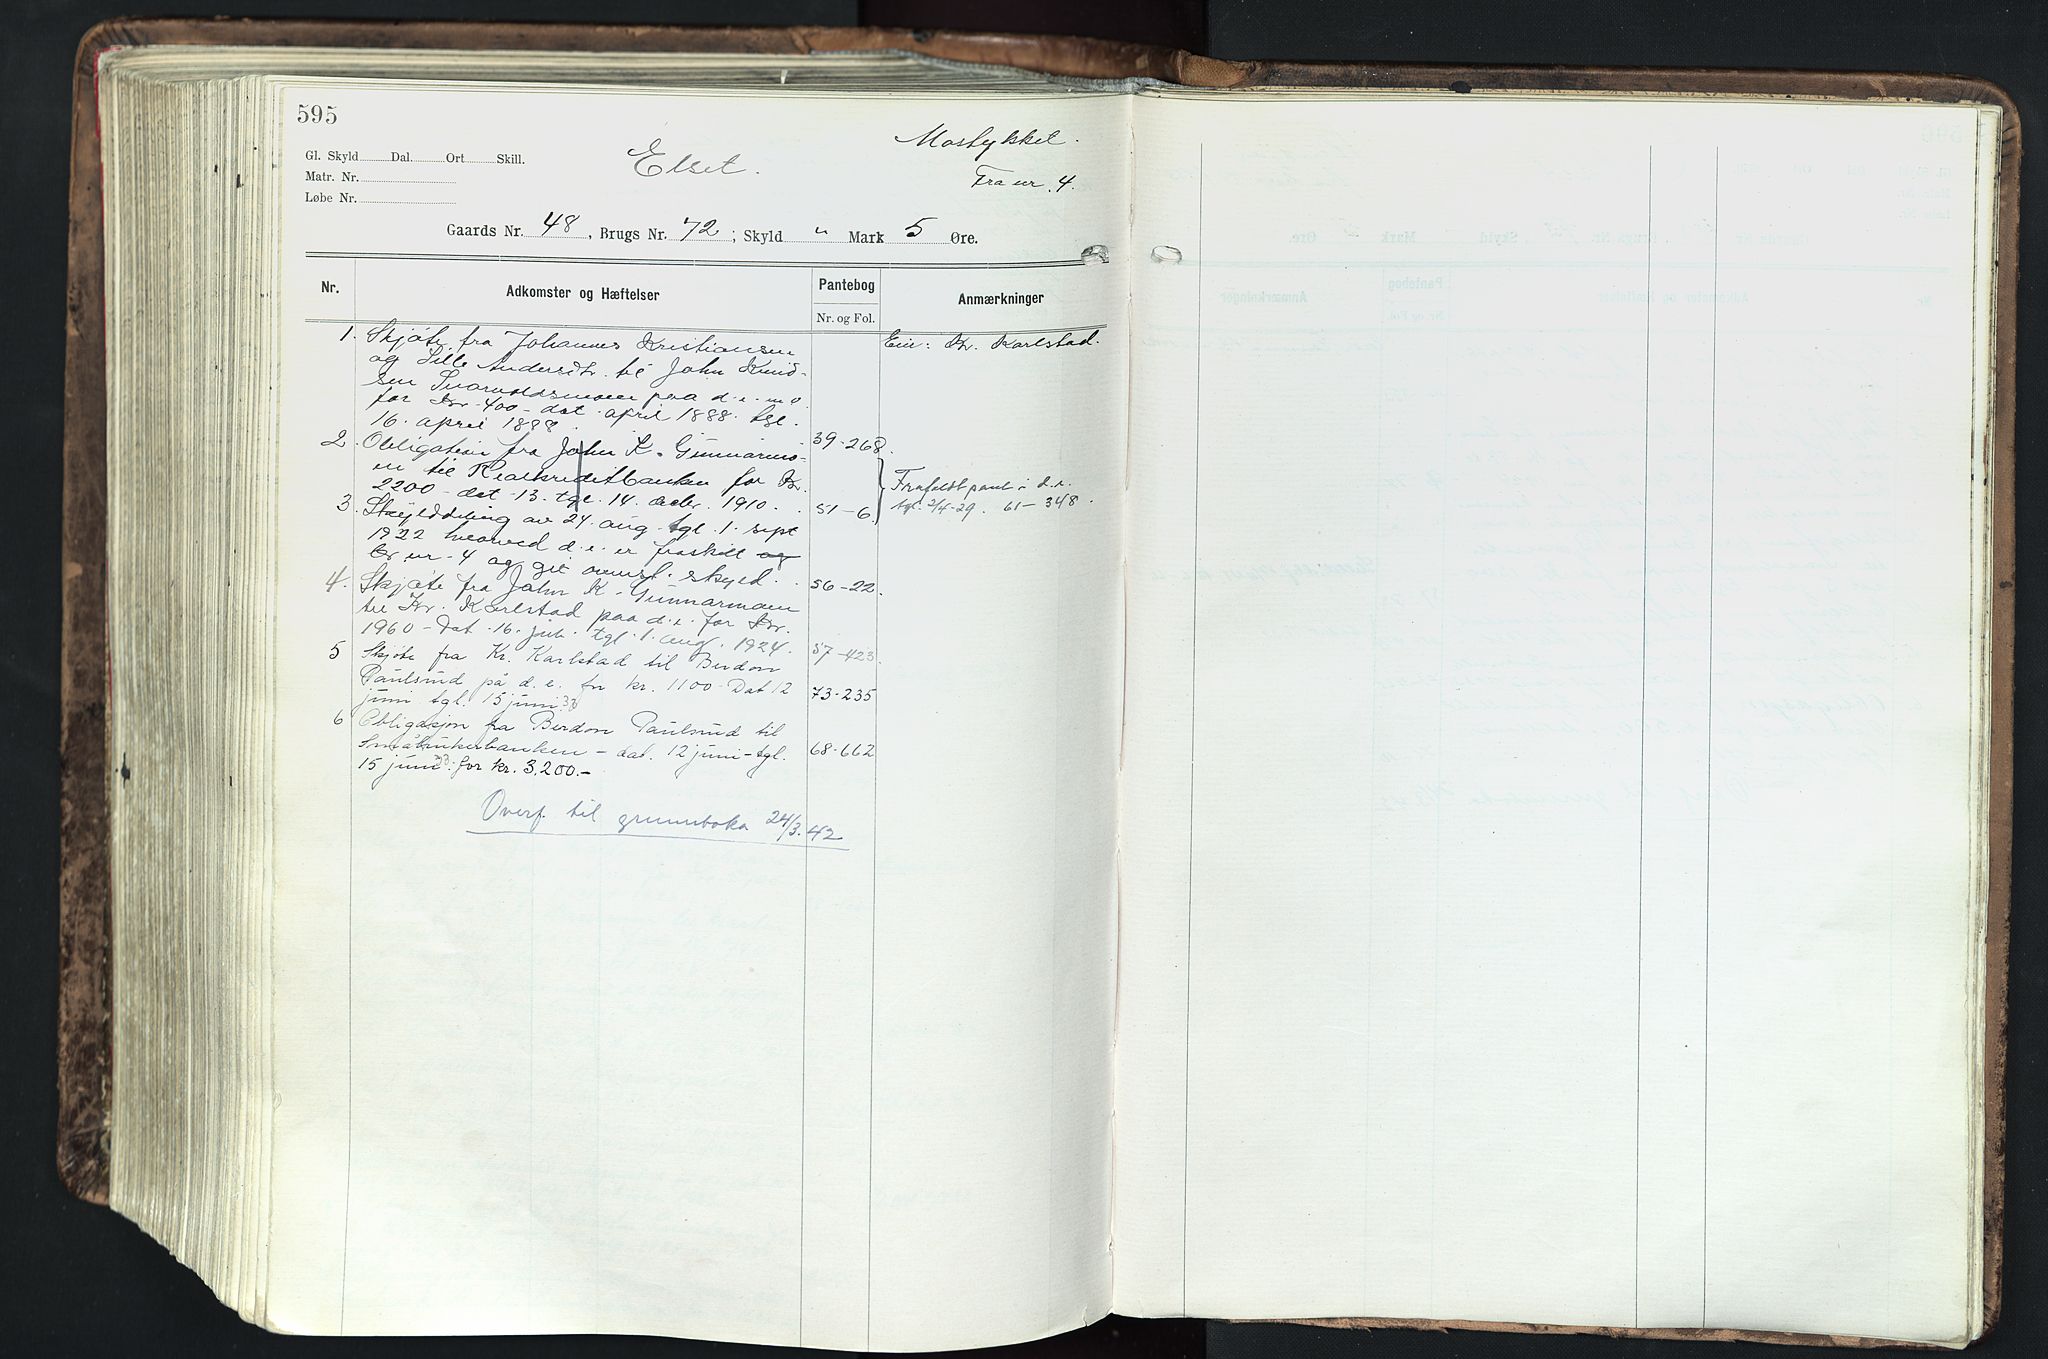 595
Mostykket.
Gl. Skyld Dal. Ort Skill.
Elset.
Matr. Nr.
Fra nr. 4.
Løbe Nr.
Gaards Nr. 48, Brugs Nr. 72; Skyld " Mark 5 Øre.
Nr. Adkomster og Hæftelser Pantebog Anmærkninger
Nr. og Fol.
1. Skjøte fra Johannes Kristiansen Eier: Kr. Karlstad.
og Sille Andersdtr. til John Knud-
sen paa d. e. m. v.
for Kr. 400 - dat. april 1888. tgl.
16. april 1888. 39-268.
2. Obligation fra John K. Gunnarmo-
en til Realkreditbanken for Kr.
2200 - dat. 13. tgl. 14. decbr. 1910. 51-6.
Frafaldt pant i d. e.
tgl. 2/4-29. 61-348.
3. Skylddeling av 24. aug. tgl. 1. sept
1922 hvorved d. e. er fraskilt og
br nr. 4 og git skyld. 56-22.
4. Skjøte fra John K. Gunnarmoen
til Kr. Karlstad paa d. e. for Kr.
1960 - Dat. 16. juli. tgl. 1. aug. 1924. 57-423.
5 Skjøte fra Kr. Karlstad til Berdon
Paulsrud på d. e. for kr. 1100 - Dat 12
juni tgl. 15 juni 73-235
6 Obligasjon fra Berdon Paulsrud til
Småbrukerbanken - dat. 12 juni - tgl. 68-662
15 juni for kr. 3.200.-
Overf. til grunnboka 24/3.42